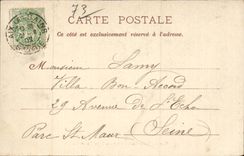 73
CARTE POSTALE
Ce côté est exclusivement réservé à l'adresse.
Monsieur Lamy
Villa Bon-Accord
29 Avenue de l'Echo
Parc St Maur (Seine)